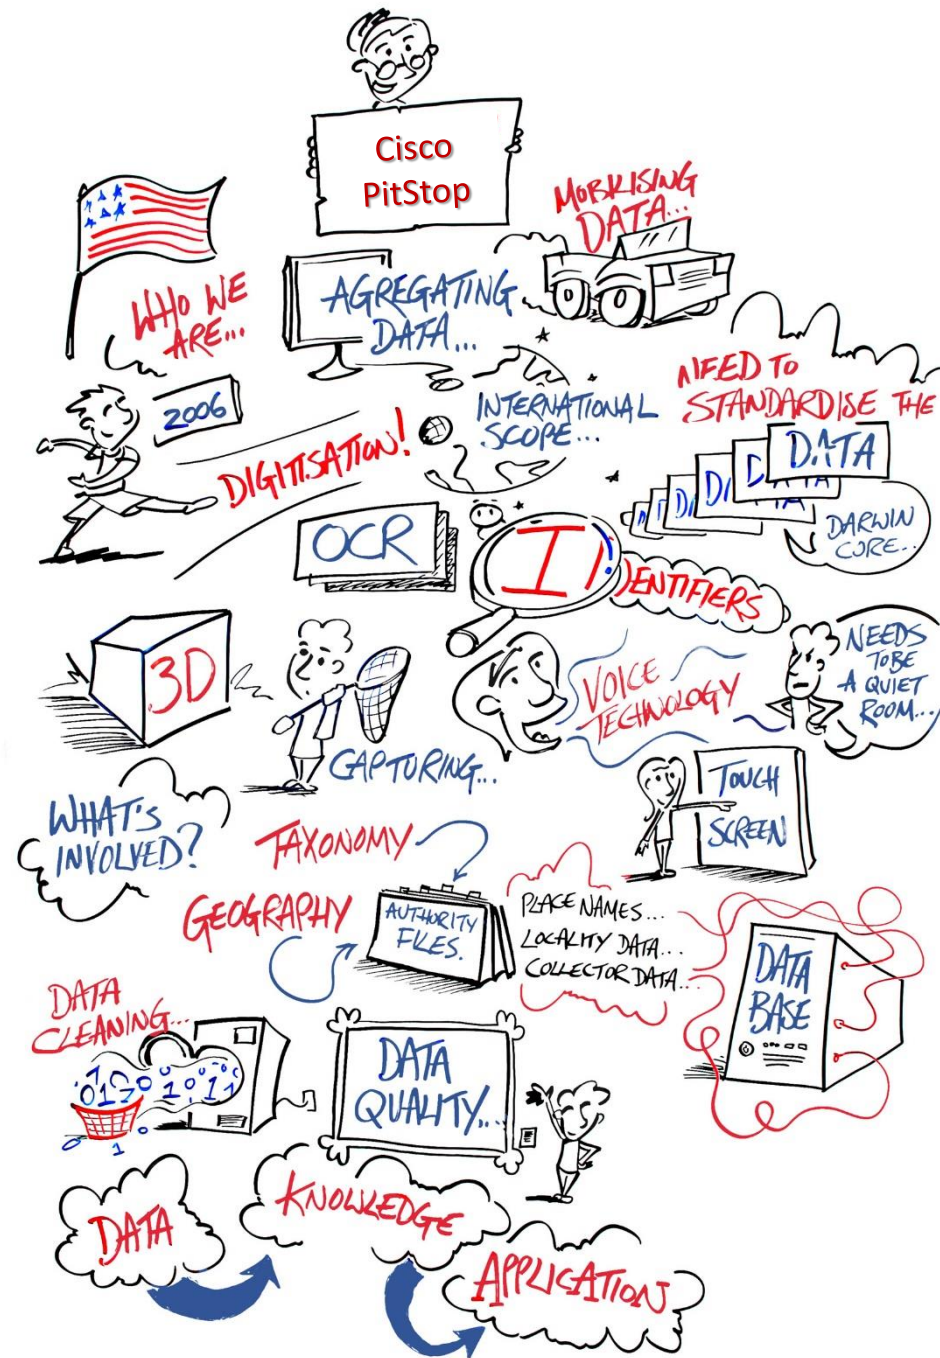 Cisco
PitStop
MOBILISING
DATA...
WHO WE
ARE...
AGREGATING
DATA...
2006
DIGITISATION!
INTERNATIONAL
SCOPE...
NEED TO
STANDARDISE THE
DATA
DARWIN
CORE...
OCR
IDENTIFIERS
3D
CAPTURING...
VOICE
TECHNOLOGY
NEEDS
TO BE
A QUIET
ROOM...
WHAT'S
INVOLVED?
TOUCH
SCREEN
TAXONOMY
GEOGRAPHY
AUTHORITY
FILES.
PLACE NAMES...
LOCALITY DATA...
COLLECTOR DATA...
DATA
BASE
DATA
CLEANING...
DATA
QUALITY...
DATA
KNOWLEDGE
APPLICATION